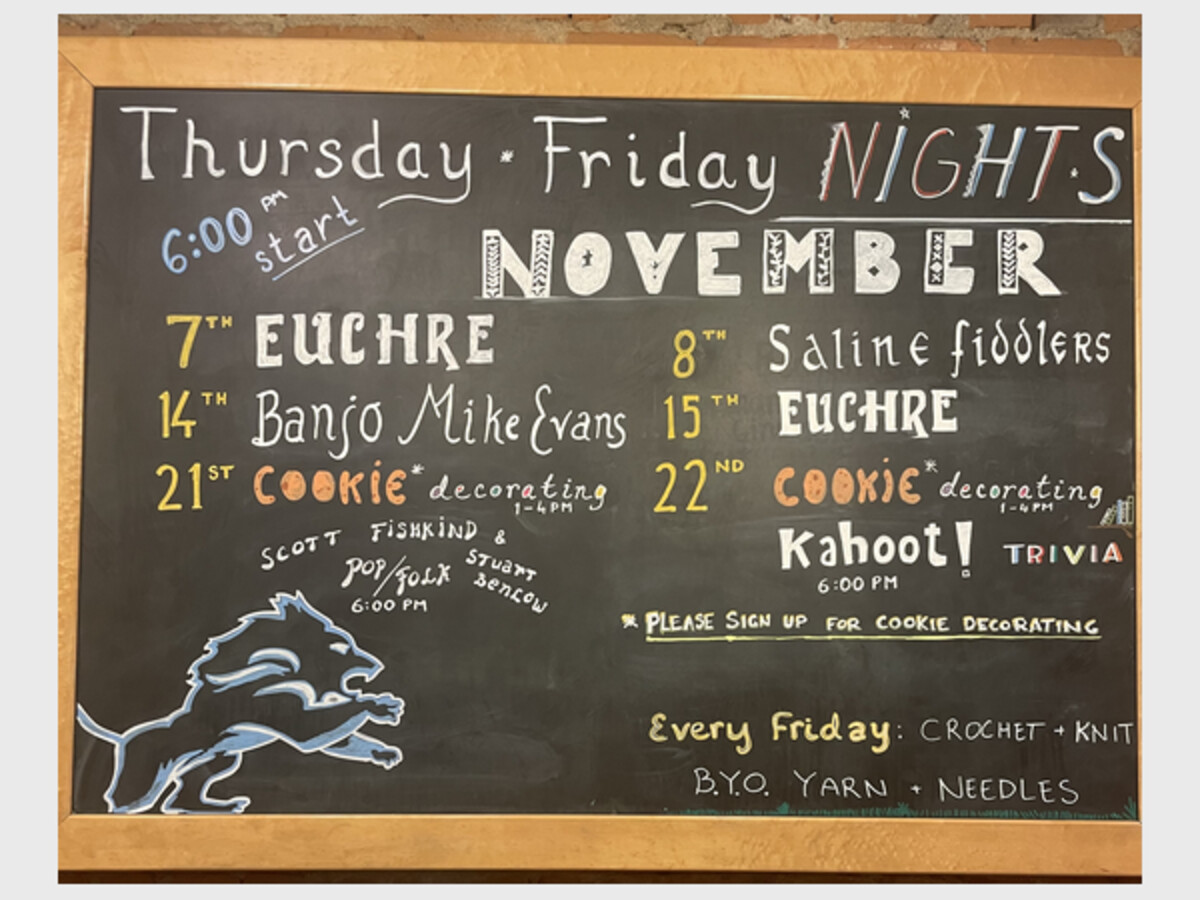 Thursday * Friday NIGHTS
6:00 PM start
NOVEMBER
7TH EUCHRE
8TH Saline fiddlers
14TH Banjo Mike Evans
15TH EUCHRE
21ST COOKIE* decorating
1-4PM
SCOTT FISHKIND &
STUART BENLOW
POP/FOLK
6:00 PM
22ND COOKIE* decorating
1-4PM
Kahoot! TRIVIA
6:00 PM
* PLEASE SIGN UP FOR COOKIE DECORATING
Every Friday: CROCHET + KNIT
B.Y.O. YARN + NEEDLES